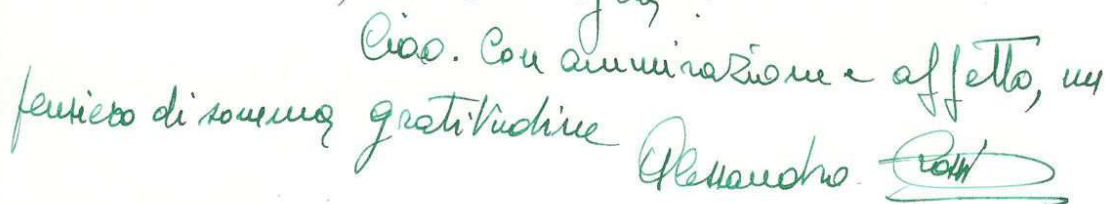 Ciao. Con ammirazione e affetto, un
pensiero di somma gratitudine
Alessandro Rossi